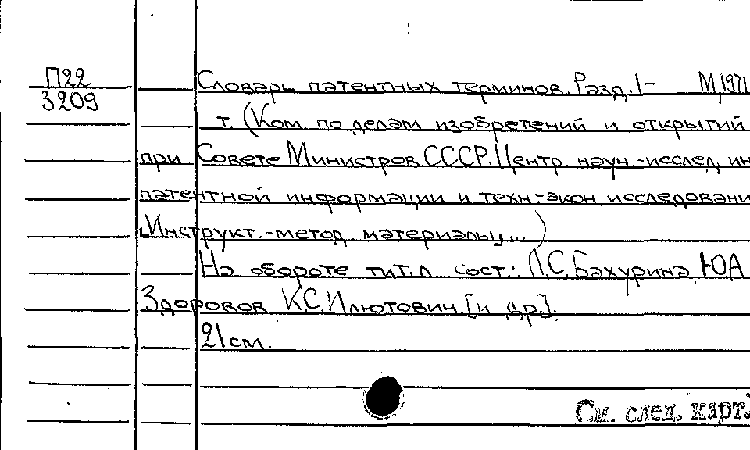 П22
3209
Словарь патентных терминов. Разд. 1- М, 1971
т. (Ком. по делам изобретений и открытий
при Совете Министров СССР. Центр. науч.-исслед. ин
патентной информации и техн-экон исследовани
Инструкт.-метод. материалы...)
На обороте тит.л сост.: Л.С. Бахурина, Ю.А
Здоровов К.С. Илютович [и др].
21 см.
См. след. карт.